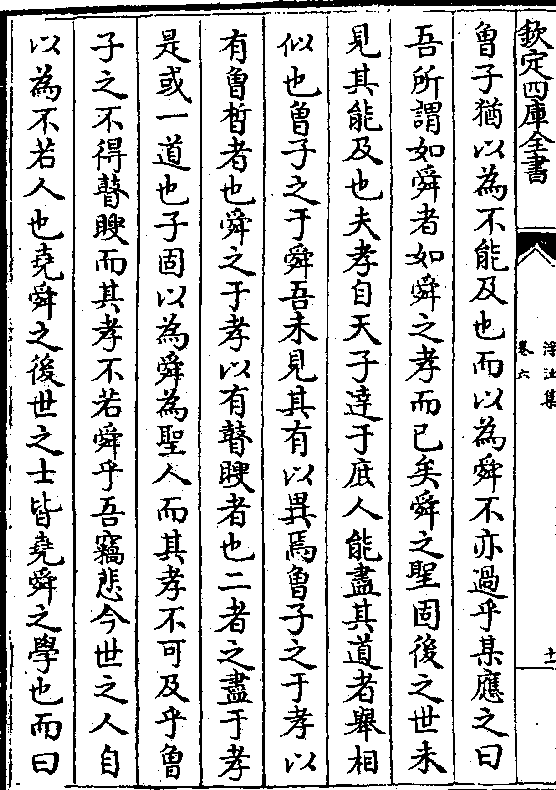 欽定四庫全書
浮沚集
卷六
十一
曾子猶以為不能及也而以為舜不亦過乎某應之曰
吾所謂如舜者如舜之孝而已矣舜之聖固後之世未
見其能及也夫孝自天子達于庶人能盡其道者舉相
似也曾子之于舜吾未見其有以異焉曾子之于孝以
有曾晳者也舜之于孝以有瞽瞍者也二者之盡于孝
是或一道也子固以為舜為聖人而其孝不可及乎曾
子之不得瞽瞍而其孝不若舜乎吾竊悲今世之人自
以為不若人也堯舜之後世之士皆堯舜之學也而曰